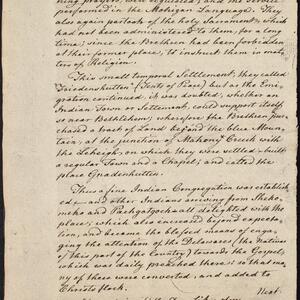 ning prayers, were regulated, and the service
performed in the Mahigan Language. They
also again partook of the holy Sacrament, which
had not been administered to them, for a long
time; since the Brethren had been forbidden
at their former place, to instruct them in mat-
ters of Religion.
This small temporal Settlement, they called
Friedenshutten (Tents of Peace) but as the Emi-
gration continued, it was doubted, whether an
Indian Town or Settlement, could support itself
so near Bethlehem; wherefore the Brethren pur-
chased a tract of Land beyond the blue Moun-
tain, at the junction of Mahony Creek with
the Lehigh, on which they were settled & built
a regular Town and a Chapel; and called the
place Gnadenhutten.
Thus a fine Indian Congregation was establish-
ed & and other Indians arriving from Sheko-
meko and Pachgatgochault delighted with the
place; which also increased beyond expecta-
tion, and became the blessed means of enga-
ging the attention of the Delawares (the Natives
of this part of the Country) towards the Gospel,
which was daily preached there; so that ma-
ny of these were converted, and added to
Christs flock.
Next